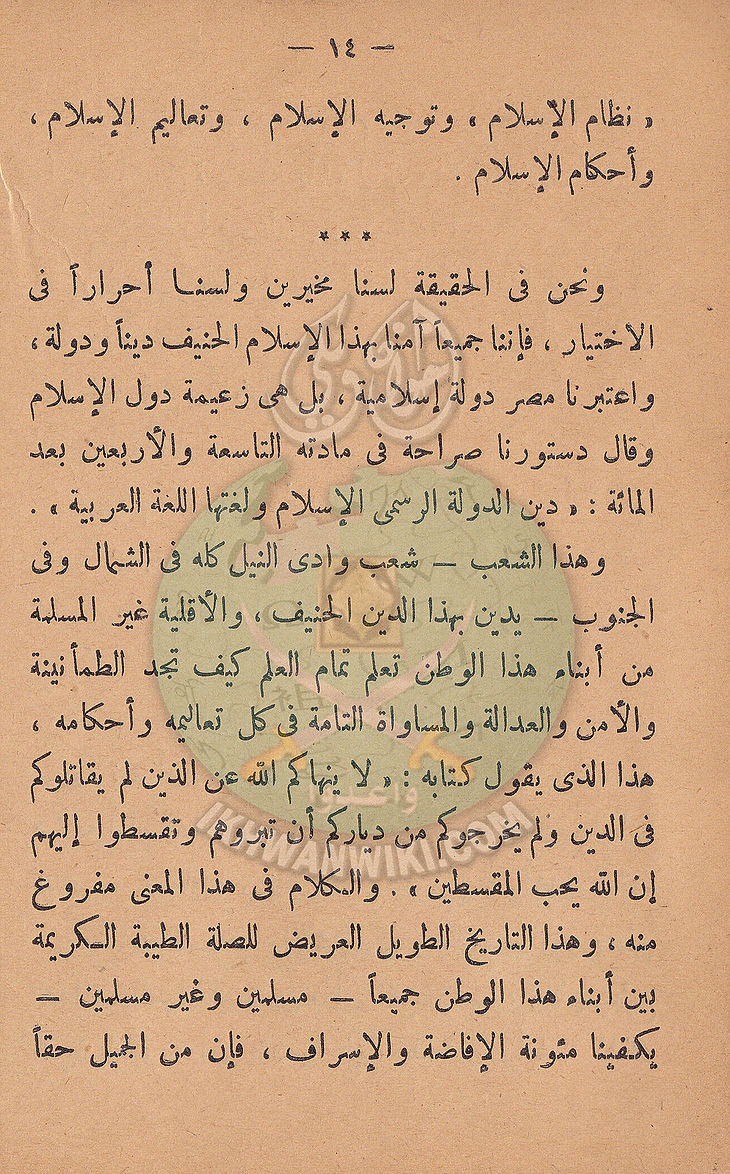 — ١٤ —
« نظام الإسلام » وتوجيه الإسلام ، وتعاليم الإسلام ،
وأحكام الإسلام .
* * *
ونحن فى الحقيقة لسنا مخيرين ولسنا أحراراً فى
الاختيار ، فإننا جميعاً آمنا بهذا الإسلام الحنيف ديناً ودولة ،
واعتبرنا مصر دولة إسلامية ، بل هى زعيمة دول الإسلام
وقال دستورنا صراحة فى مادته التاسعة والأربعين بعد
المائة : « دين الدولة الرسمى الإسلام ولغتها اللغة العربية » .
وهذا الشعب — شعب وادى النيل كله فى الشمال وفى
الجنوب — يدين بهذا الدين الحنيف ، والأقلية غير المسلمة
من أبناء هذا الوطن تعلم تمام العلم كيف تجد الطمأنينة
والأمن والعدالة والمساواة التامة فى كل تعاليمه وأحكامه ،
هذا الذى يقول كتابه : « لا ينهاكم الله عن الذين لم يقاتلوكم
فى الدين ولم يخرجوكم من دياركم أن تبروهم وتقسطوا إليهم
إن الله يحب المقسطين » . والكلام فى هذا المعنى مفروغ
منه ، وهذا التاريخ الطويل العريض للصلة الطيبة الكريمة
بين أبناء هذا الوطن جميعاً — مسلمين وغير مسلمين —
يكفينا مئونة الإفاضة والإسراف ، فإن من الجميل حقاً
وأعدوا
IKHWANWIKI.COM